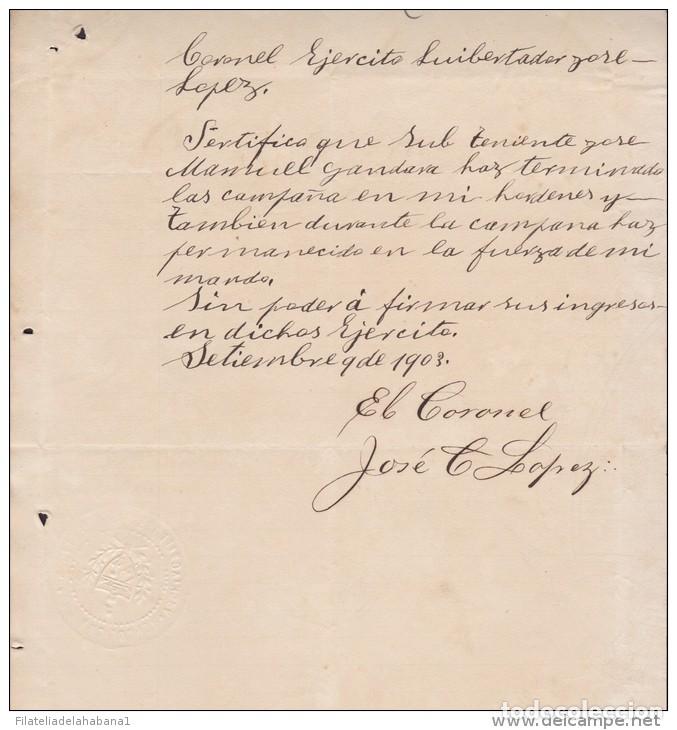 Coronel Ejercito Luibertador jose
Lopez.
Sertifico que Sub teniente jose
Manuell gandara haz terminado
las campaña en mi hordenes y
también durante la campana haz
permanecido en la fuerza de mi
mando.
Sin poder á firmar sus ingresos
en dichos Ejercito.
Setiembre 9 de 1903.
El Coronel
José C Lopez
Filateliadelahabana1
todocoleccion
www.delcampe.net